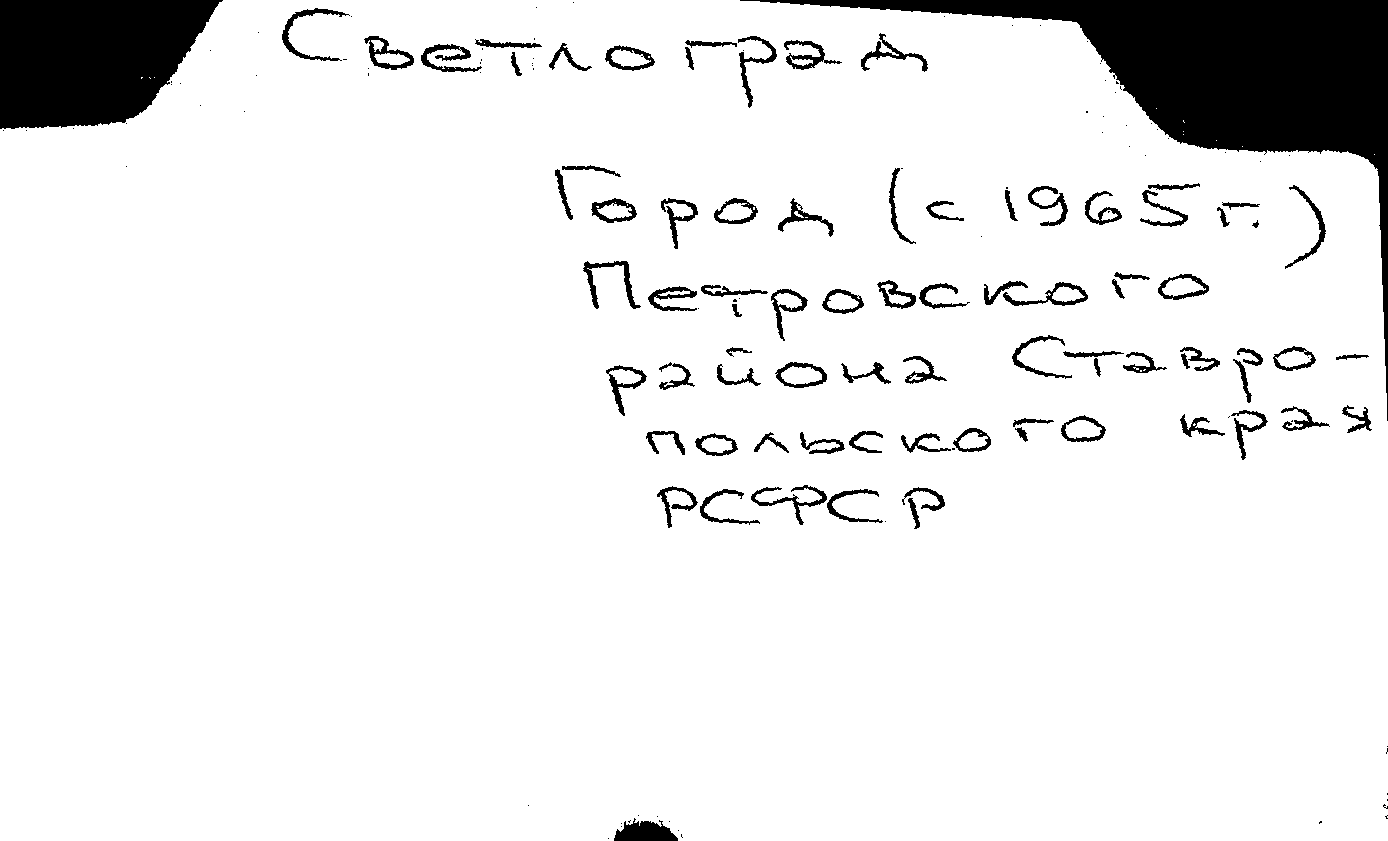 Светлоград
Город (с 1965 г.)
Петровского
района Ставро-
польского края
РСФСР